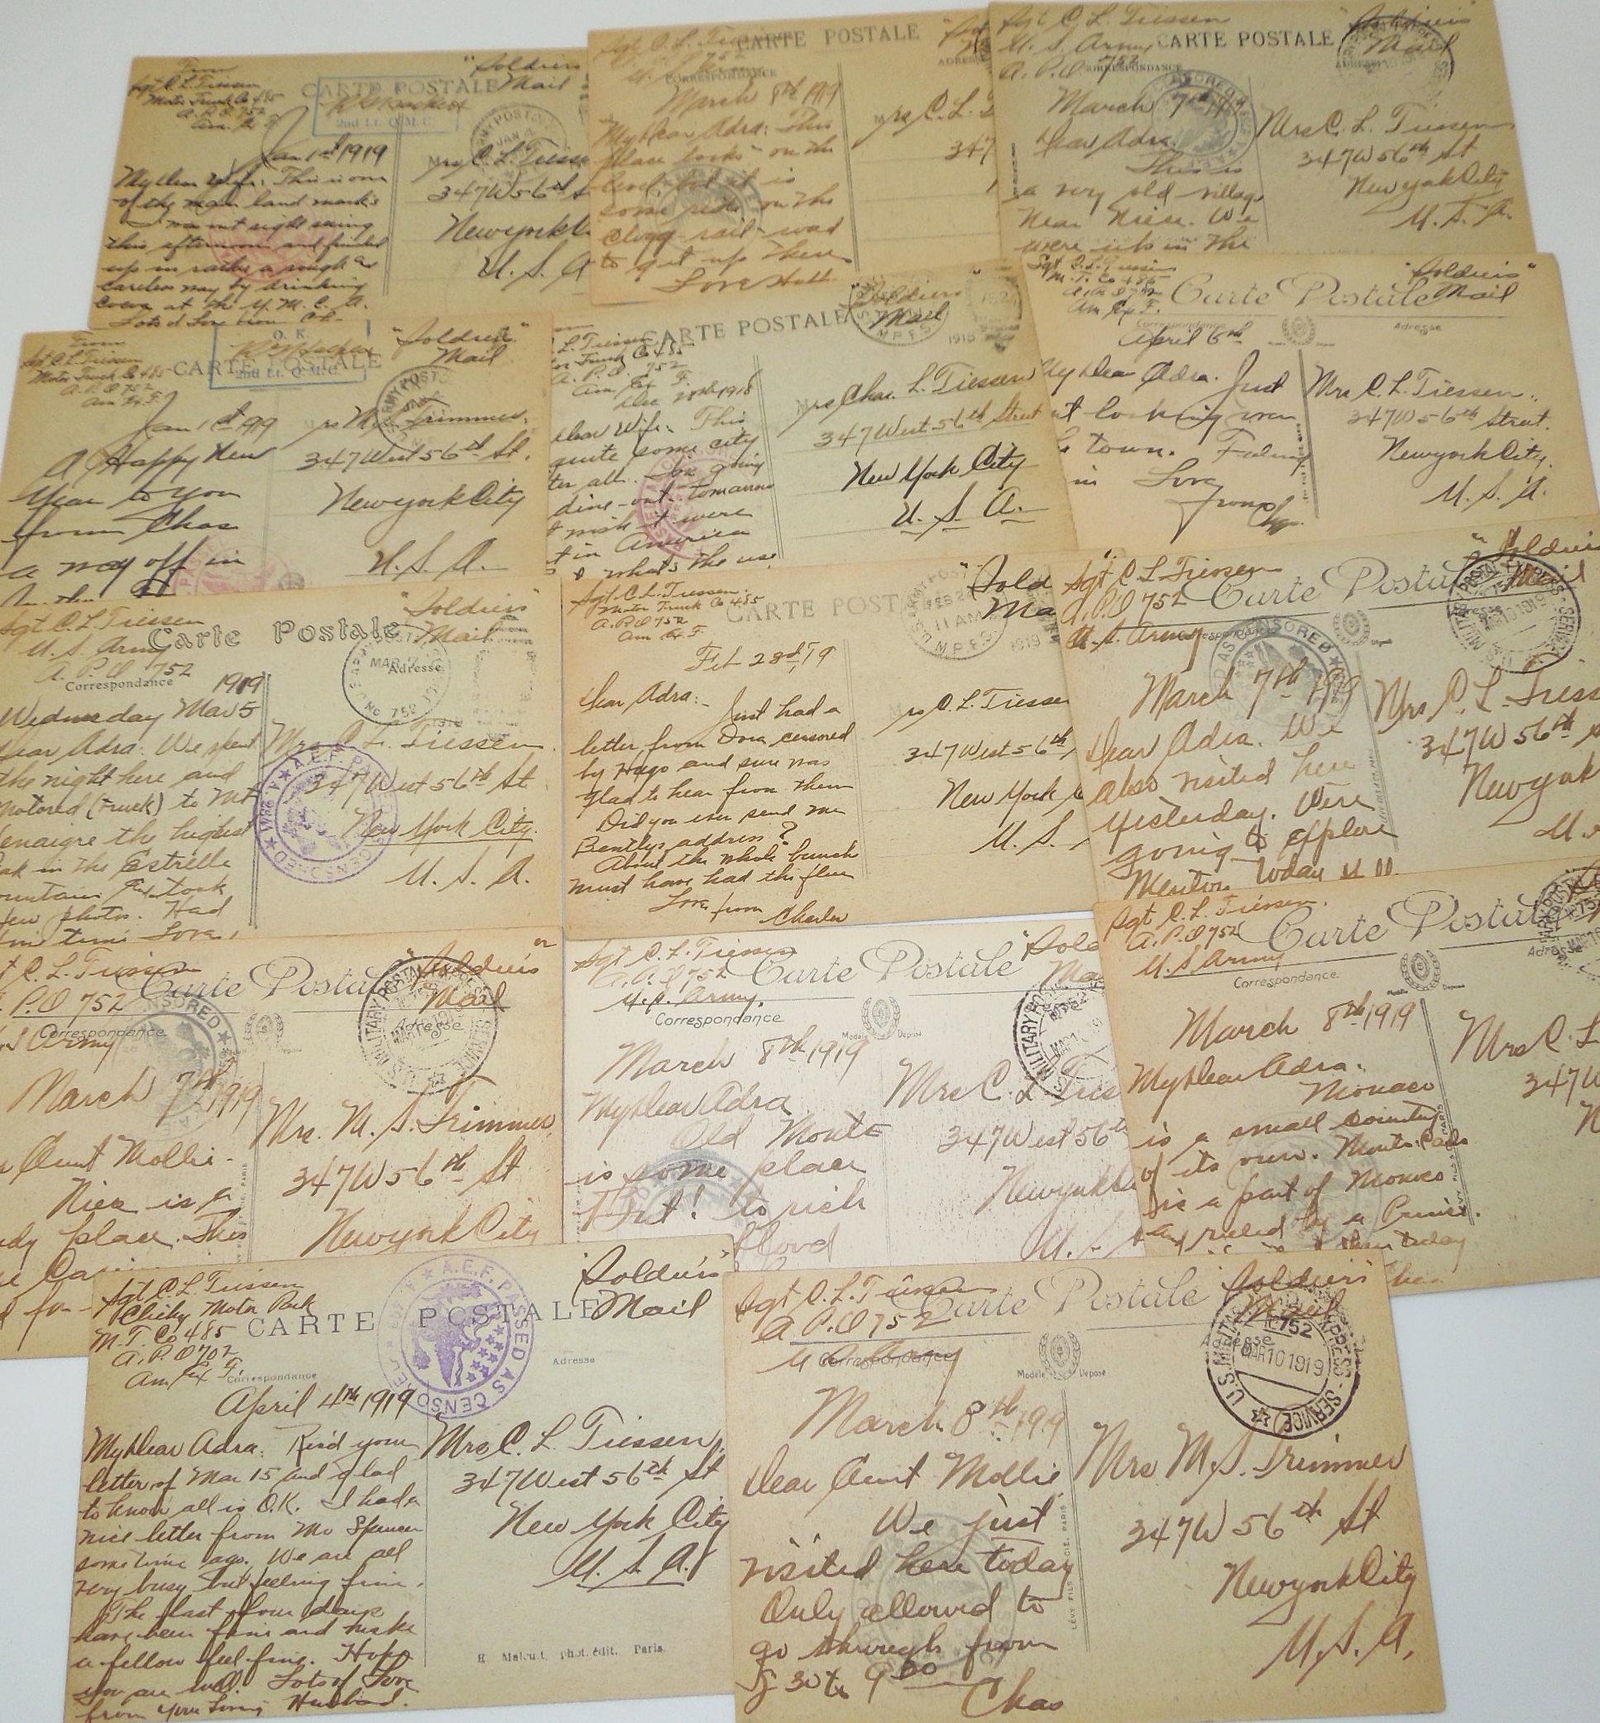 From
Sgt C L Tiessen
Motor Truck Co 485
A. P. O 752
Am. Ex F.
CARTE POSTALE
2nd Lt. Q.M.C.
"Soldiers
Mail
Jan 1st 1919
My dear Wife: This is one
of the main land marks
I was out sight seeing
this afternoon and finished
up in rather a rough &
careless way by drinking
cocoa at the Y. M. C. A.
Lots of Love from Ch.
Mrs C. L. Tiesse
347W56th S
New York
U. S. A
Sgt C. L. Tiessen
752
CARTE POSTALE
CORRESPONDANCE
March 8th 1919
My dear Adra: This
place looks on the
level but it is
some ride on the
clogg-rail-road
to get up there
Love Hub.
Mrs C. L. T
347
Sgt C L Tiessen
U. S. Army
A. P. O 752
CARTE POSTALE
CORRESPONDANCE
"Soldiers
Mail
March 7th 1919
Dear Adra:
This is
a very old village
near Nice. We
were up in the
Mrs C. L. Tiessen
347W 56th St
New York City
U. S. A.
From
Sgt C L Tiessen
Motor Truck Co 485
A. P. O 752
Am Ex F.
CARTE POSTALE
O. K.
2nd Lt. Q.M.C.
"Soldiers"
Mail
Jan 1st 1919
A Happy New
Year to You
from Chas
a way off in
Mrs M. S. Trimmer.
347 West 56th St.
New York City
U. S. A.
L. Tiessen
or Truck Co 485
A. P. O. 752
Am Ex F.
CARTE POSTALE
Soldiers
Mail
1918
Dec 28th 1918
dear Wife. This
quite some city
ter all. Im going
dine-out-tomorrow
wish it were
t in America
& what's the use
Mrs Chas. L. Tiessen
347 West 56th Street
New York City
U. S. A.
Sgt C. L. Tiessen
M. T. Co 485
A. P. O 752
Am Ex F.
Carte Postale
Correspondance
Adresse
"Soldiers"
Mail
April 6th
My dear Adra. Just
ut looking over
s town. Feeling
in
Love
from Chas.
Mrs C. L. Tiessen.
347W56th Street.
New York City.
U. S. A.
Sgt C. L. Tiessen
U. S. Army
A. P. O 752
Carte Postale
Correspondance
Adresse
"Soldiers"
Mail
MAR
No 752
1919
Wednesday Mar 5
Dear Adra: We spent
the night here and
motored (truck) to Mt
Venaigre the highest
eak in the Estrelle
ountain & took
few photos. Had
fine time Love,
Mrs C. L. Tiessen.
347 West 56th St.
New York City.
U. S. A.
A.E.F. PASSED AS CENSORED
Sgt C. L. Tiessen
Motor Truck Co 485
A. P. O 752
Am Ex F.
CARTE POST
"Sold
Ma
U.S. ARMY POST
FEB 28
11 AM
M.P.E.S.
1919
Feb 28th 19
Dear Adra:-
Just had a
letter from Dora censored
by Hugo and sure was
glad to hear from them
Did you ever send me
Bently's address?
About the whole bunch
must have had the flu
Love from
Charles
Mrs C. L. Tiessen
347 West 56th
New York C
U. S.
Sgt C L Tiessen
A. P. O 752
U. S. Army
Carte Postal
Correspondance
Adresse
"Soldiers
Mail
March 7th 1919
Dear Adra. We
also visited here
yesterday. We're
going to explore
Menton today
Mrs. C. L. Tiess
347W 56th S
New York
U. S
t C. L. Tiessen
. P. O 752
. S Army
Carte Postale
Correspondance
Adresse
"Soldiers"
Mail
March 7th 1919
r Aunt Mollie-
Nice is a
dy place. This
Mrs. M. S. Trimmer
347W56th St
New York City
Sgt C. L. Tiessen
A. P. O 752
U. S. Army.
Carte Postale
Correspondance
Modèle Déposé
"Sold
Mai
March 8th 1919
My dear Adra
Old Monte
is some place
But! to rich
blood
Mrs C. L Ties
347 West 56th
New York
U. S
Sgt C. L. Tiessen.
A. P. O 752
U. S Army
Carte Postale
Correspondance
Adresse
Modèle Déposé
March 8th 1919
My dear Adra.
Monaco
is a small country
of its own. Monte Carlo
is a part of Monaco
ruled by a Prince.
today
Mrs C. L
347W
N
Sgt C. L. Tiessen
Clichy Motor Park
M. T. Co 485
A. P. O 702
Am Ex F.
CARTE POSTALE
Correspondance
Adresse
Soldiers
Mail
A.E.F. PASSED AS CENSORED
April 4th 1919
My dear Adra: Rec'd your
letter of Mar 15 and glad
to know all is O.K. I had a
nice letter from Mr Spencer
sometime ago. We are all
very busy but feeling fine.
The past four days
have been fine and make
a fellow feel fine. Hope
you are well. Lots of Love
from Your Loving Husband.
Mrs C. L. Tiessen.
347 West 56th St
New York City
U. S. A.
E Malcuit, phot. édit. Paris.
Sgt C. L. Tiessen
A. P. O 752
U. S. Army
Carte Postale
Correspondance
Adresse
Modèle Déposé
Soldiers
Mail
U.S. MILITARY POSTAL EXPRESS SERVICE
752
MAR 10 1919
March 8th 1919
Dear Aunt Mollie
We just
visited here today
Only allowed to
go through from
8 30 to 9 00
Chas
LÉVY FILS & CIE, PARIS
Mrs M. S. Trimmer
347W 56th St
New York City
U. S. A.